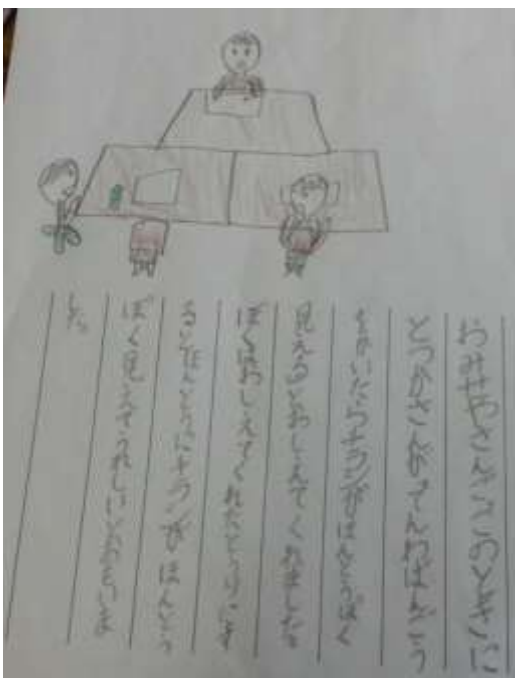 おみせやさんごっこのときに
とつかさんがでんわばんごう
をかいたらチラシがほんとうぽく
見えるとおしえてくれました。
ぼくはおしえてくれたとうりにす
るとほんとうにチラシがほんとう
ぽく見えてうれしいとおもいま
した